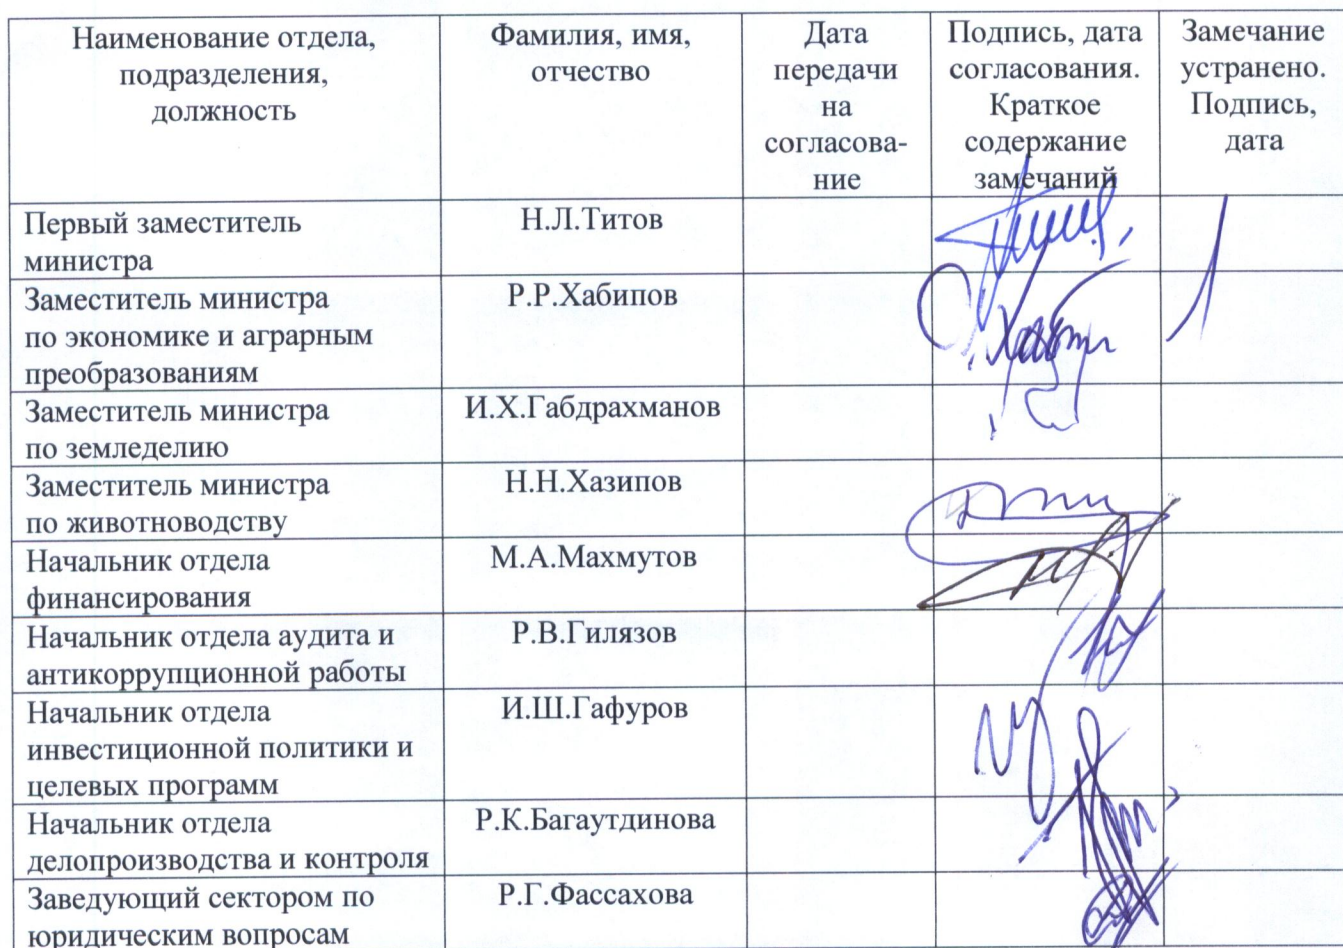 Наименование отдела,
подразделения,
должность
Фамилия, имя,
отчество
Дата
передачи
на
согласова-
ние
Подпись, дата
согласования.
Краткое
содержание
замечаний
Замечание
устранено.
Подпись,
дата
Первый заместитель
министра
Н.Л.Титов
Заместитель министра
по экономике и аграрным
преобразованиям
Р.Р.Хабипов
Заместитель министра
по земледелию
И.Х.Габдрахманов
Заместитель министра
по животноводству
Н.Н.Хазипов
Начальник отдела
финансирования
М.А.Махмутов
Начальник отдела аудита и
антикоррупционной работы
Р.В.Гилязов
Начальник отдела
инвестиционной политики и
целевых программ
И.Ш.Гафуров
Начальник отдела
делопроизводства и контроля
Р.К.Багаутдинова
Заведующий сектором по
юридическим вопросам
Р.Г.Фассахова